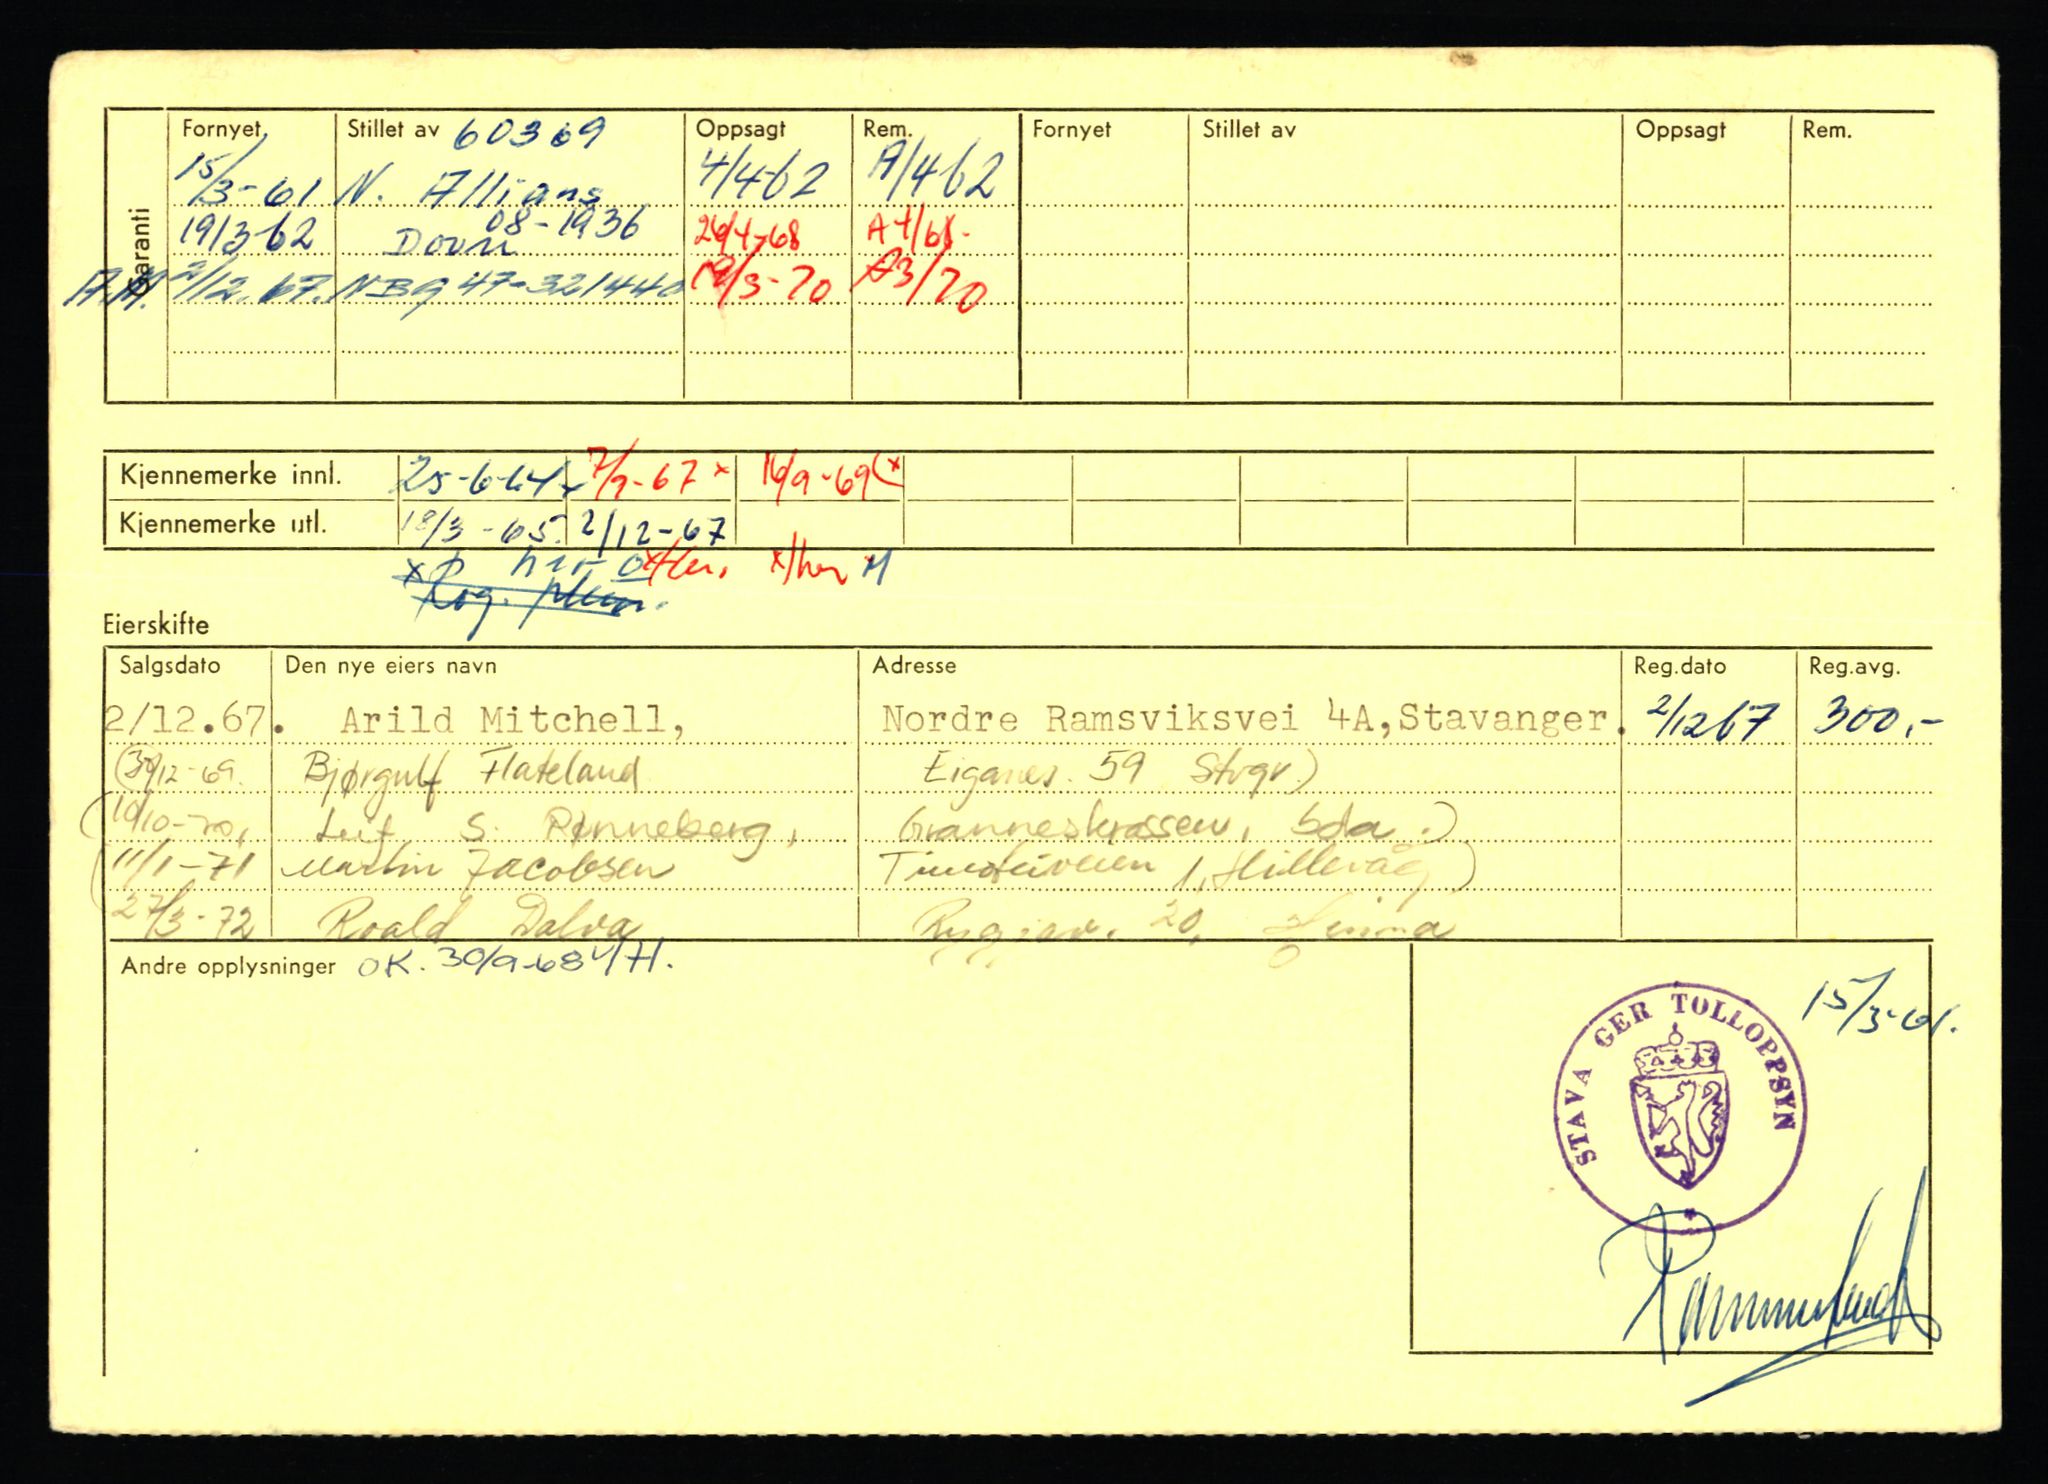 Garanti
Fornyet Stillet av 60369 Oppsagt Rem. Fornyet Stillet av Oppsagt Rem.
15/3-61 N. Allians 4/4-62 A/4 62
19/3-62 Dovre 08-1936 26/4-68 A 4/68-
2/12.67. NBG 47-321440 19/3-70 A3/70
Kjennemerke innl. 25-6-64 x 7/9-67 x 16/9-69 (x
Kjennemerke utl. 18/3-65. 2/12-67
x x/her. x/her M
Rog.
Eierskifte
Salgsdato Den nye eiers navn Adresse Reg.dato Reg.avg.
2/12.67. Arild Mitchell, Nordre Ramsviksvei 4A, Stavanger. 2/12 67 300,-
(30/12-69. Bjørgulf Flateland Eiganes. 59 Stvgr.)
(10/10-70, Leif S. Rønneberg, Granneskrossen, Sola.)
(11/1-71 Martin Jacobsen Timoteiveien 1, Hillevåg)
27/3-72 Roald Dalva 20, Hinna
Andre opplysninger OK. 30/9-68
15/3-61.
STAVA GER TOLLOPPSYN